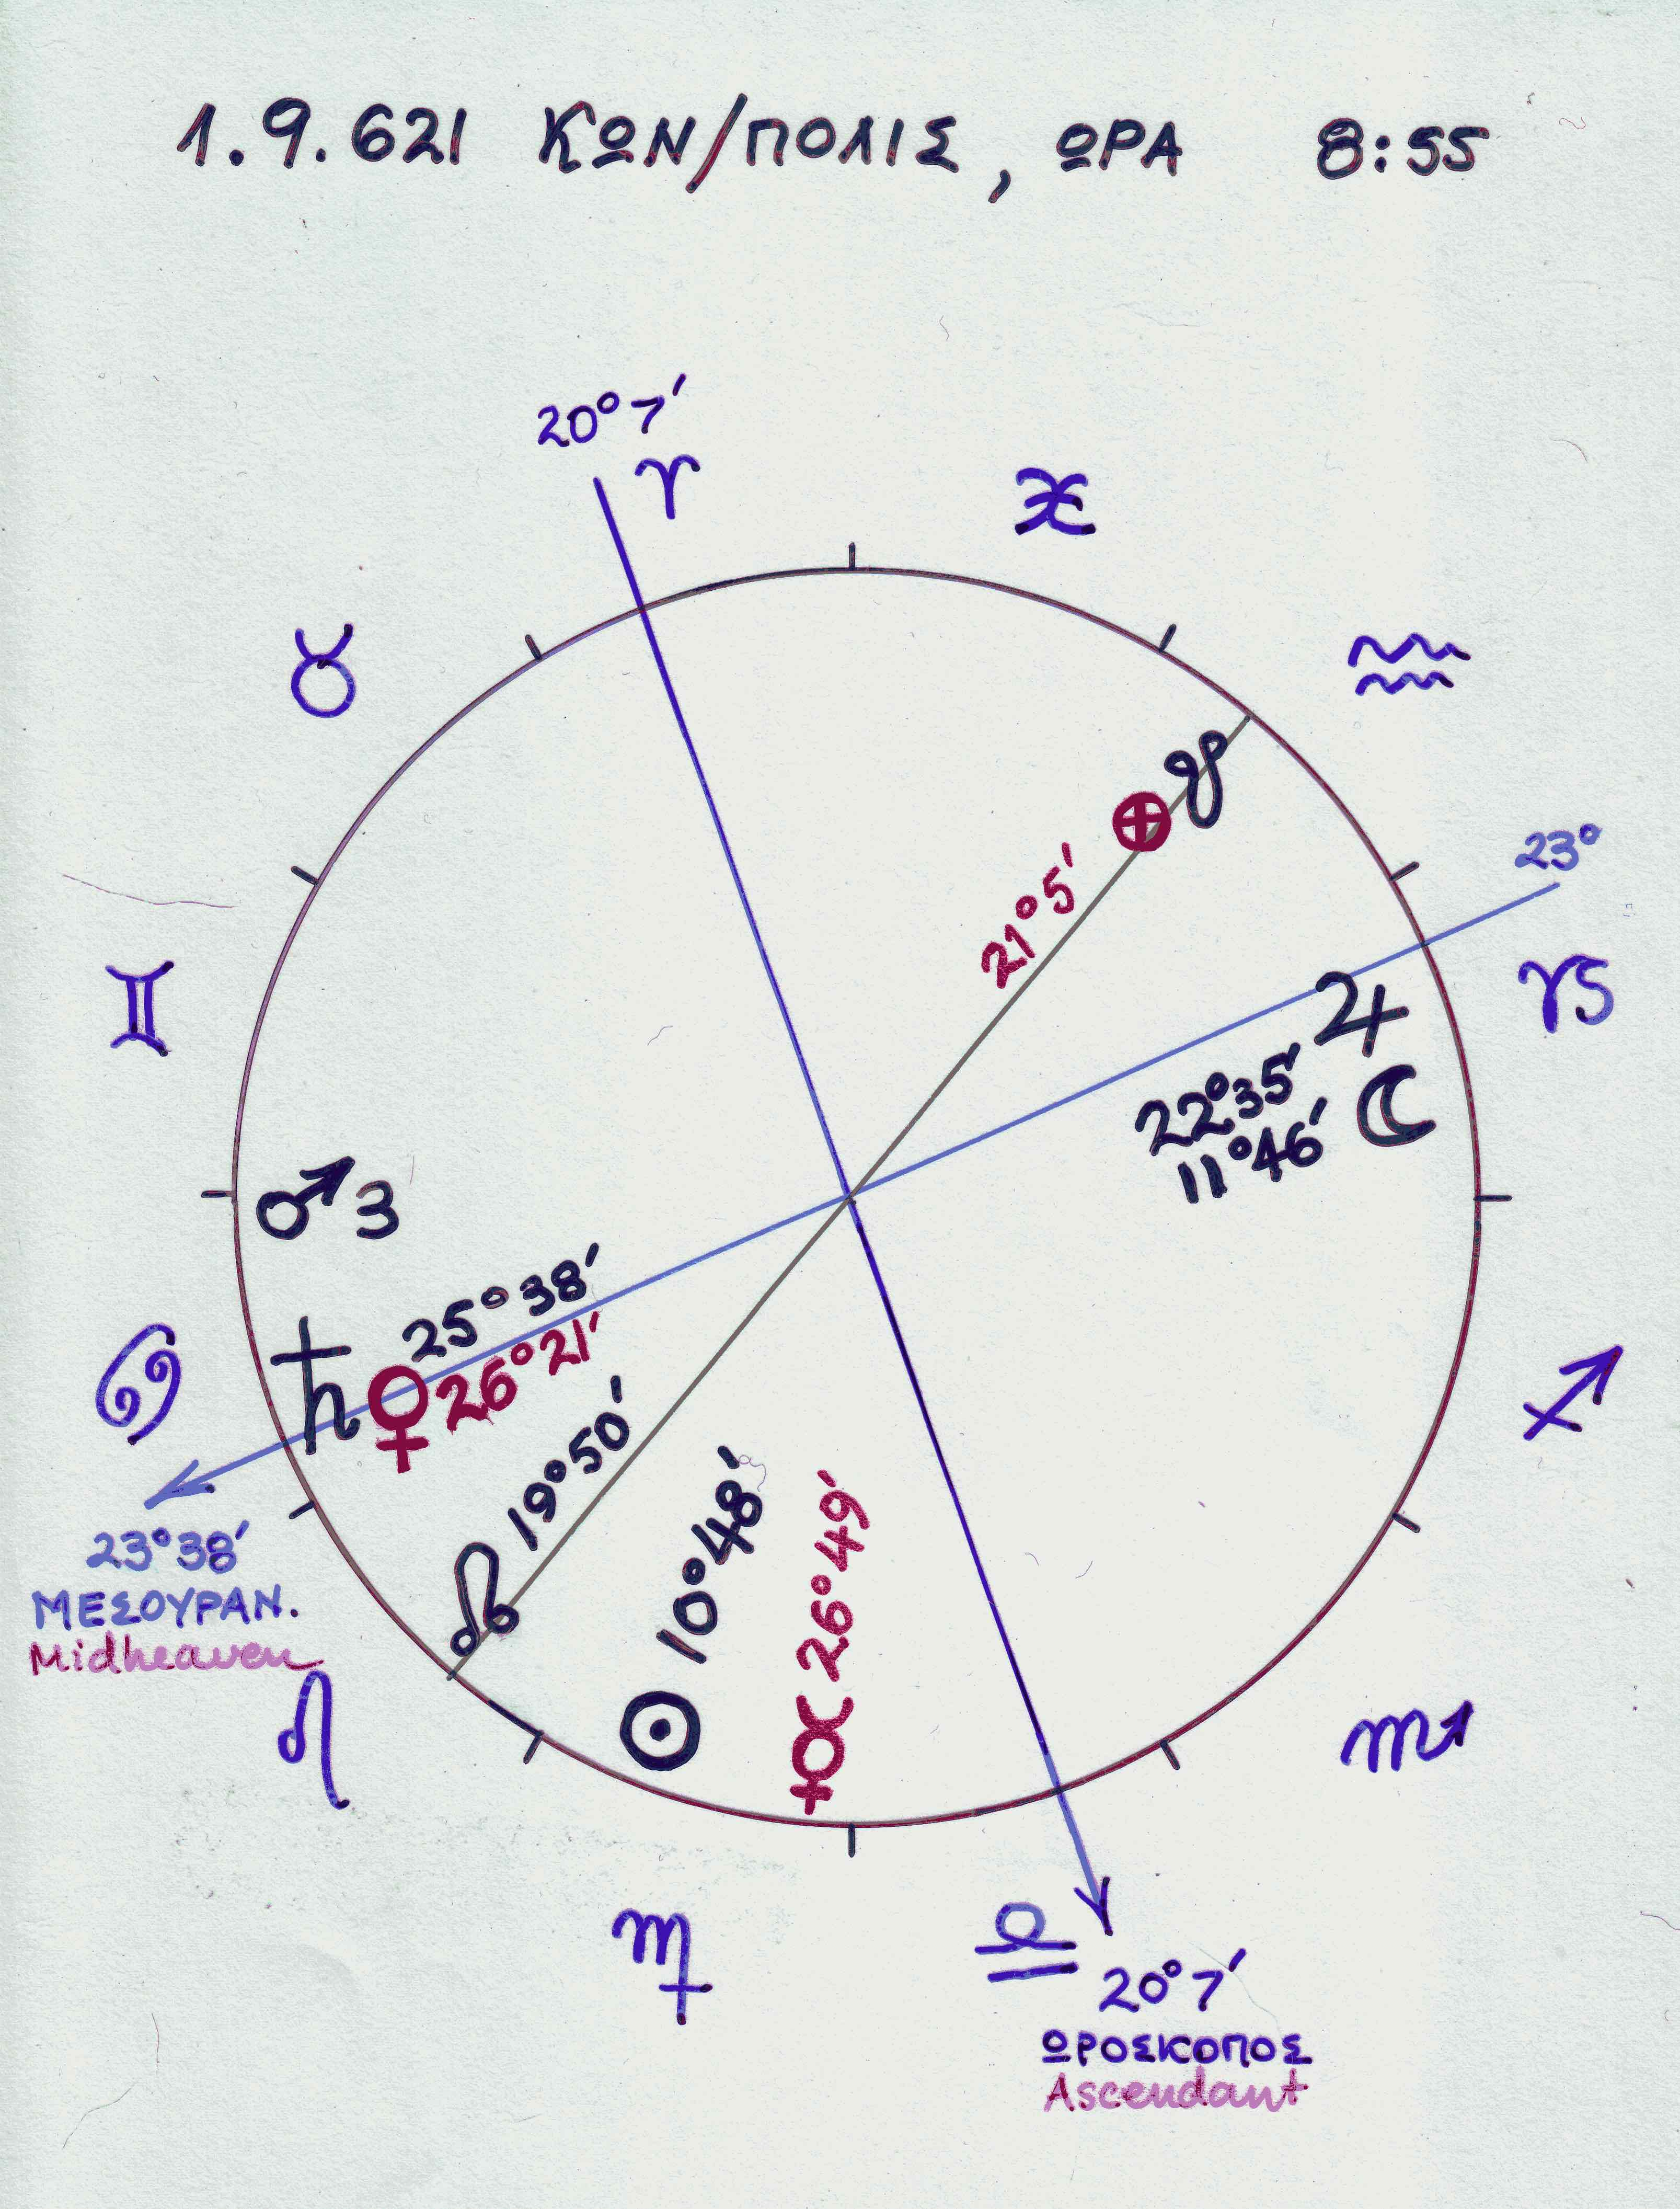 1.9.621 ΚΩΝ/ΠΟΛΙΣ, ΩΡΑ 8:55
20°7′
♈
♓
♉
♒
21°5′
23°
♊
♑
22°35′
11°46′
♂ 3
25°38′
♀ 26°21′
♋
♐
☊ 19°50′
☉ 10°48′
☿ 26°49′
23°38′
ΜΕΣΟΥΡΑΝ.
Midheaven
♌
♏
♍
♎
20°7′
ΩΡΟΣΚΟΠΟΣ
Ascendant